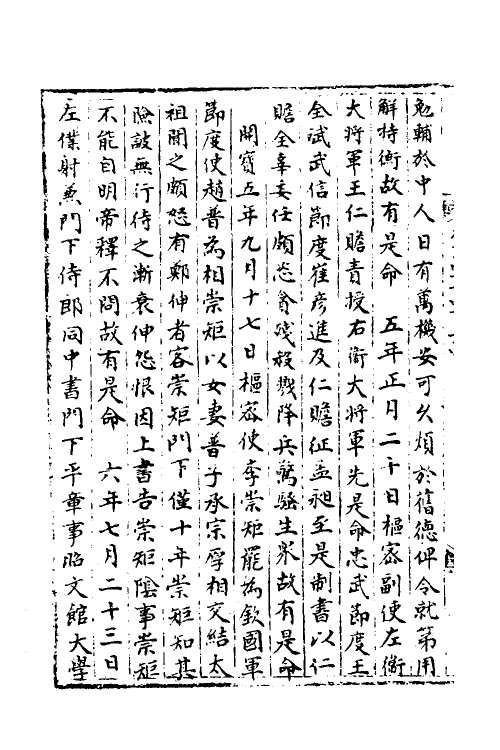 勉輔於中人日有萬機安可久煩於舊德俾令就第用
解持衡故有是命　五年正月二十日樞密副使左衛
大將軍王仁贍責授右衛大將軍先是命忠武節度王
全斌武信節度崔彦進及仁贍征孟昶至是制書以仁
贍全辜委任頗恣貪殘殺戮降兵驚騷生衆故有是命
開寶五年九月十七日樞密使李崇矩罷為鎮國軍
節度使趙普為相崇矩以女妻普子承宗厚相交結太
祖聞之頗怒有鄭伸者客崇矩門下僅十年崇矩知其
險詖無行待之漸衰伸怨恨因上書告崇矩陰事崇矩
不能自明帝釋不問故有是命　六年七月二十三日
左僕射兼門下侍郎同中書門下平章事昭文館大學